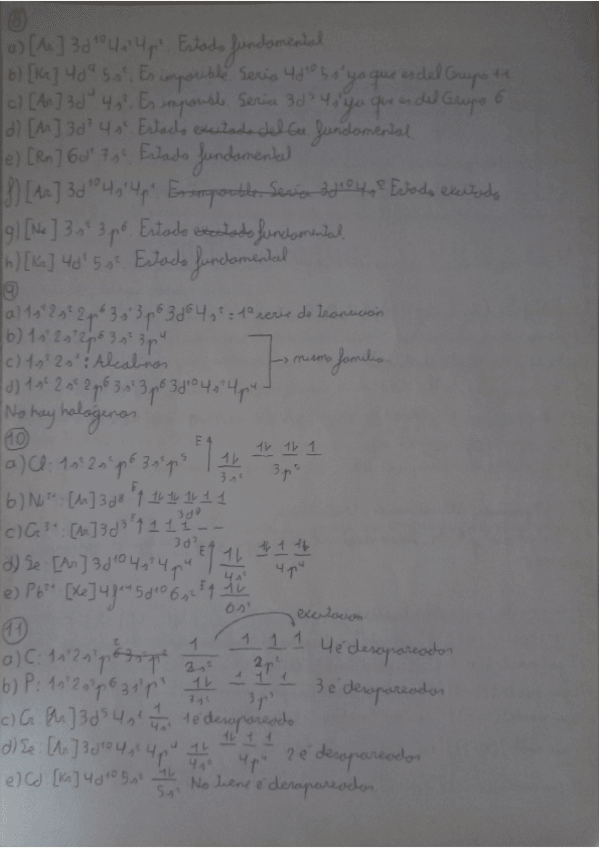 8
a) [Ar] 3d¹⁰ 4s² 4p². Estado fundamental
b) [Kr] 4d⁹ 5s². Es imposible. Sería 4d¹⁰ 5s¹ ya que es del Grupo 11
c) [Ar] 3d⁴ 4s². Es imposible. Sería 3d⁵ 4s¹ ya que es del Grupo 6
d) [Ar] 3d⁷ 4s². Estado excitado del Co fundamental
e) [Rn] 6d¹ 7s². Estado fundamental
f) [Ar] 3d¹⁰ 4s¹ 4p¹. Es imposible. Sería 3d¹⁰ 4s² Estado excitado
g) [Ne] 3s² 3p⁶. Estado excitado fundamental.
h) [Kr] 4d¹ 5s². Estado fundamental
9
a) 1s² 2s² 2p⁶ 3s² 3p⁶ 3d⁶ 4s² = 1ª serie de transición
b) 1s² 2s² 2p⁶ 3s² 3p⁴
c) 1s² 2s¹: Alcalinos → misma familia
d) 1s² 2s² 2p⁶ 3s² 3p⁶ 3d¹⁰ 4s² 4p⁴
No hay halógenos
10
a) Cl: 1s² 2s² p⁶ 3s² p⁵ E↑ 1l 1l 1l 1
3s² 3p⁵
b) Ni²⁺: [Ar] 3d⁸ E↑ 1l 1l 1l 1 1
3d⁸
c) Cr³⁺: [Ar] 3d³ E↑ 1 1 1 – –
3d³
d) Se: [Ar] 3d¹⁰ 4s² 4p⁴ E↑ 1l 1l 1 1l
4s² 4p⁴
e) Pb²⁺: [Xe] 4f¹⁴ 5d¹⁰ 6s² E↑ 1l
6s²
11
excitación
a) C: 1s² 2s² p² 3s² p² 1 1 1 1 4 e⁻ desapareados
2s² 2p²
b) P: 1s² 2s² p⁶ 3s² p³ 1l 1 1 1 3 e⁻ desapareados
3s² 3p³
c) Cr [Ar] 3d⁵ 4s¹ 1 1e⁻ desapareado
4s¹
d) Se: [Ar] 3d¹⁰ 4s² 4p⁴ 1l 1l 1 1 2 e⁻ desapareados
4s² 4p⁴
e) Cd [Kr] 4d¹⁰ 5s² 1l No tiene e⁻ desapareados
5s²